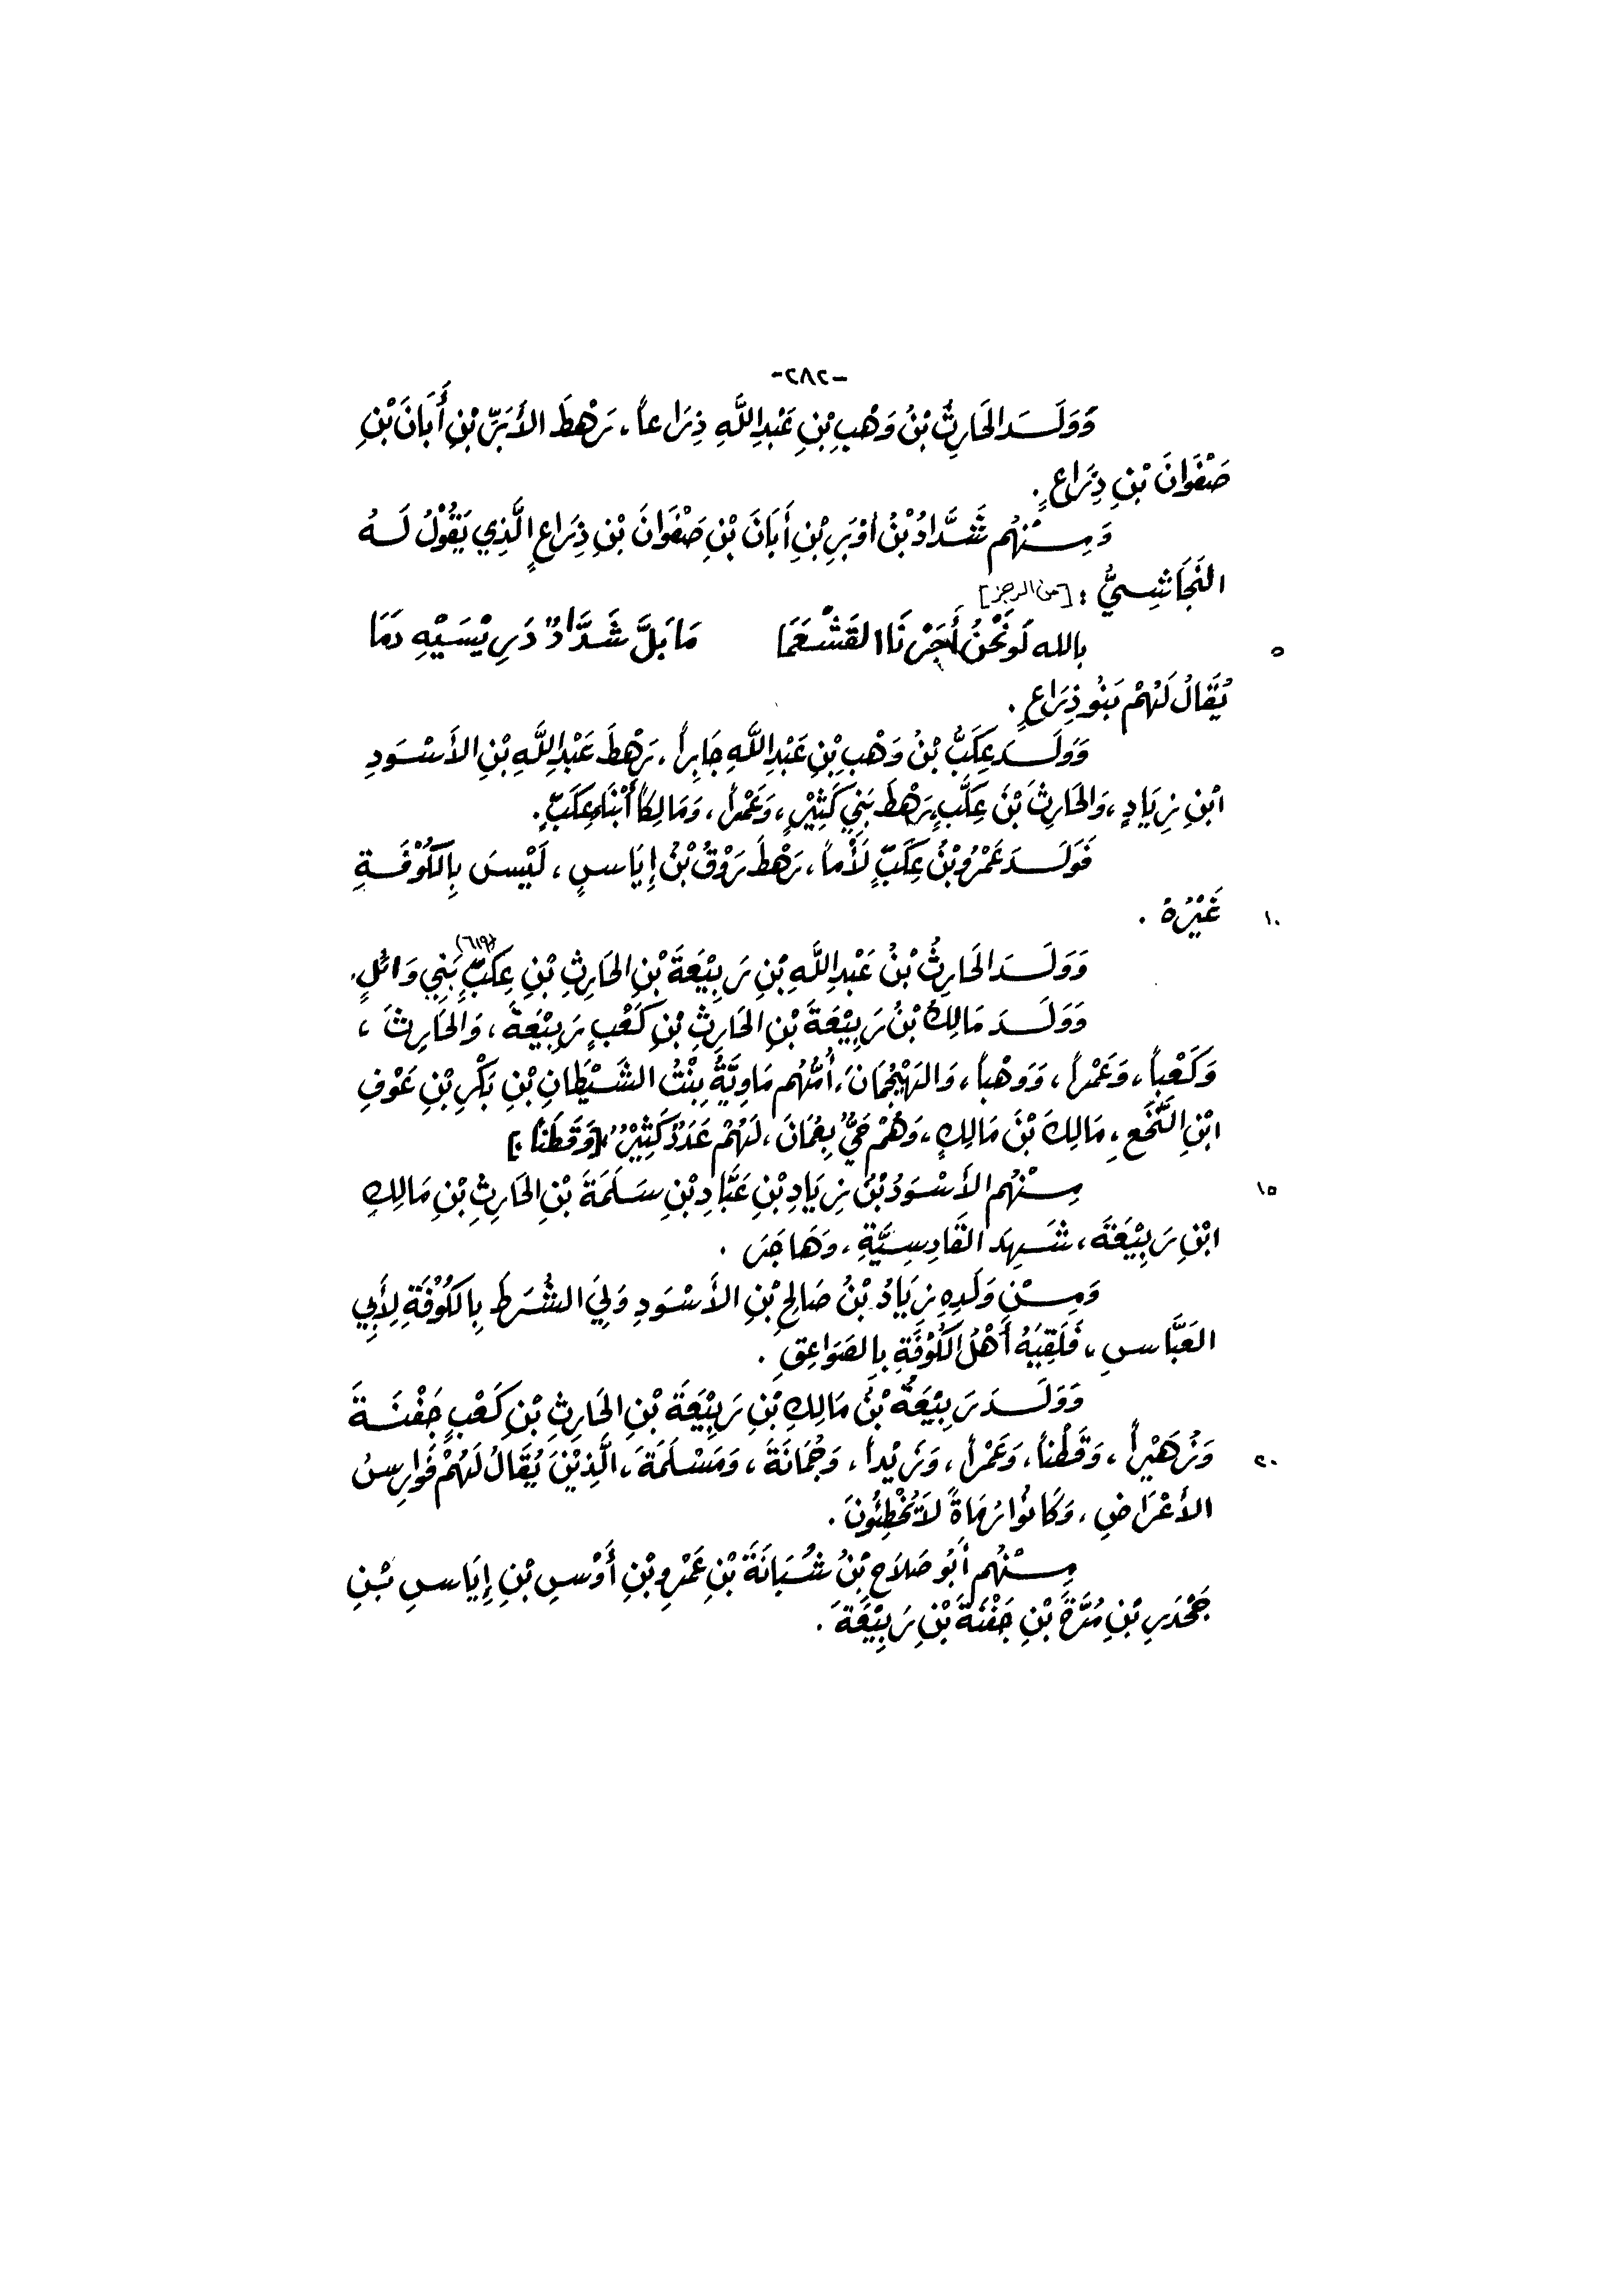 -٢٨٢-
وَوَلَدَ الحَارِثُ بْنُ وَهْبِ بْنِ عَبْدِ اللَّهِ ذِرَاعاً، رَهْطَ الأَبَرِّ بْنِ أَبَانَ بْنِ
صَفْوَانَ بْنِ ذِرَاعٍ.
وَمِنْهُم شَدَّادُ بْنُ أوْبَرِ بْنِ أَبَانَ بْنِ صَفْوَانَ بْنِ ذِرَاعٍ الَّذِي يَقُوْلُ لَهُ
النَّجَاشِيُّ : [من الرجز]
بالله لَو نَحْنُ أَجَرْنَا القَشْعَمَا مَا بَلَّ شَدَّادٌ دَرِيْسَيْهِ دَمَا
٥
يُقَالُ لَهُمْ بَنُو ذِرَاعٍ.
وَوَلَدَ عِكَبُّ بْنُ وَهْبِ بْنِ عَبْدِ اللَّهِ جَابِراً، رَهْطَ عَبْدِ اللَّهِ بْنِ الأَسْوَدِ
ابْنِ زِيَادٍ، وَالحَارِثَ بْنَ عِكَبٍّ، رَهْطَ بَنِي كَثِيْرٍ، وَعَمْراً، وَمَالِكاً أَبْنَاءِ عِكَبٍّ.
فَوَلَدَ عَمْرُو بْنُ عِكَبٍّ لَأْماً، رَهْطَ رَوْقُ بْنُ إِيَاسٍ، لَيْسَ بِالكُوْفَةِ
غَيْرُهُ . ١٠
وَوَلَدَ الحَارِثُ بْنُ عَبْدِ اللَّهِ بْنِ رَبِيْعَةَ بْنِ الحَارِثِ بْنِ عِكَبٍّ (٦١٩) بَنِي وَائلٍ.
وَوَلَدَ مَالِكُ بْنُ رَبِيْعَةَ بْنِ الحَارِثِ بْنِ كَعْبٍ رَبِيْعَةَ، وَالحَارِثَ،
وَكَعْباً، وَعَمْراً، وَوَهْباً، وَالهَيْجُمَانَ، أُمُّهُم مَاوِيَّةُ بِنْتُ الشَّيْطَانِ بْنِ بَكْرِ بْنِ عَوْفِ
ابْنِ النَّخَعِ، مَالِكَ بْنَ مَالِكٍ، وَهُمْ حَيٌّ بِعُمَانَ، لَهُمْ عَدَدٌ كَثِيْرٌ، [وَقَطَناً.]
مِنْهُم الأَسْوَدُ بْنُ زِيَادِ بْنِ عَبَّادِ بْنِ سَلَمَةَ بْنِ الحَارِثِ بْنِ مَالِكِ ١٥
ابْنِ رَبِيْعَةَ، شَهِدَ القَادِسِيَّةِ، وَهَاجَرَ .
وَمِنْ وَلَدِهِ زِيَادُ بْنُ صَالِحِ بْنِ الأَسْوَدِ وَلِيَ الشُّرَطَ بِالكُوْفَةِ لِأَبِي
العَبَّاسِ، فَلَقِيَهُ أَهْلُ الكُوْفَةِ بِالصَوَاعِقِ .
وَوَلَدَ رَبِيْعَةُ بْنُ مَالِكِ بْنِ رَبِيْعَةَ بْنِ الحَارِثِ بْنِ كَعْبٍ جَفْنَةَ
وَزُهَيْراً، وَقَطْناً، وَعَمْراً، وَزَيْداً، وَجُمَانَةَ، وَمَسْلَمَةَ، الَّذِيْنَ يُقَالُ لَهُمْ فَوَارِسُ ٢٠
الأَعْرَاضِ، وَكَانُوا رُمَاةً لاَ يُخْطِئُونَ.
مِنْهُم أَبُو صَلاَحِ بْنُ شُبَانَةَ بْنِ عَمْرِو بْنِ أَوْسِ بْنِ إِيَاسِ بْنِ
جَحْدَرِ بْنِ مُرَّةَ بْنِ جَفْنَةَ بْنِ رَبِيْعَةَ .